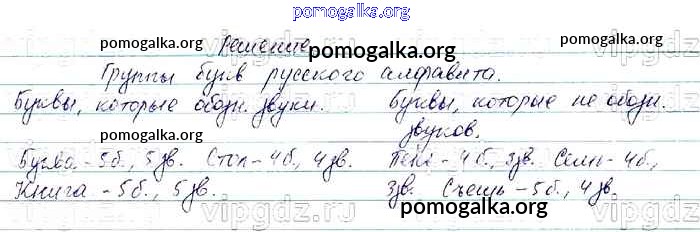 pomogalka.org
Решение
pomogalka.org pomogalka.org pomogalka.org
Группы букв русского алфавита.
Буквы, которые обозн. звуки. Буквы, которые не обозн.
звуков.
pomogalka.org pomogalka.org
Буква - 5б., 5зв. Стол - 4б., 4зв. Пень - 4б., 3зв. Семь - 4б.,
Книга - 5б., 5зв. 3зв. Съешь - 5б., 4зв.
vipgdz.ru pomogalka.org vipgdz.ru pomogalka.org vipgdz.ru
pomogalka.org